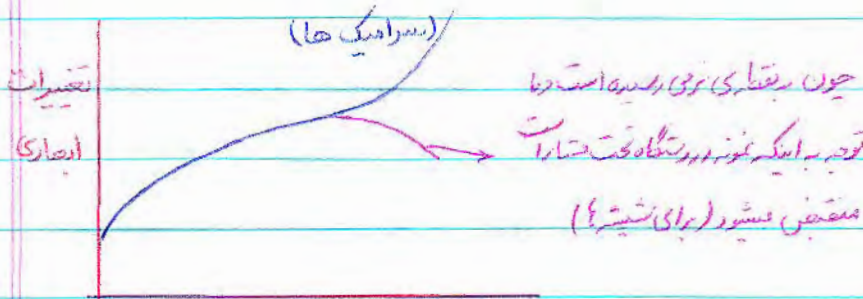 (سرامیک ها)
تغییرات
ابعادی
چون به نقطه ی نرمی رسیده است و با
توجه به اینکه نمونه در دستگاه تحت فشار است
منقبض میشود (برای شیشه ها)